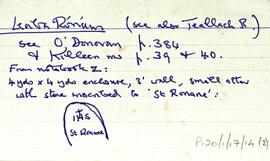 (see also Teallach R)
see O'Donovan p. 384
& Killeen ms p. 39 & 40.
From notebook 2:
4 yds x 4 yds enclosure, 3' wall, small altar
with stone inscribed to 'St Ronane':
IHS
St Ronane
P120/1/17/14 (2)